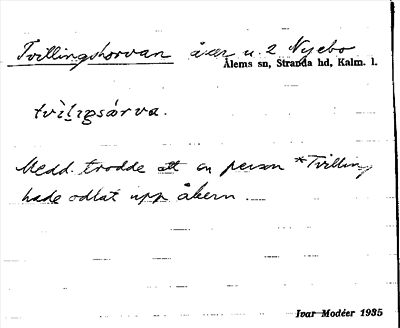 Tvillingshorvan åker u. 2 Nyebo
Ålems sn, Stranda hd, Kalm. l.
tvìlıgsárva.
Medd. trodde att en person *Tvilling
hade odlat upp åkern.
Ivar Modéer 1935